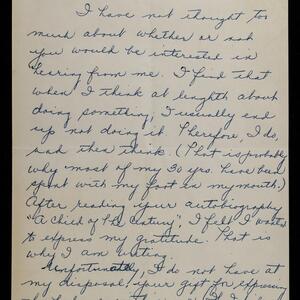 I have not thought too
much about whether or not
you would be interested in
hearing from me. I find that
when I think at lenghth about
doing something, I usually end
up not doing it. Therefore, I do,
and then think. (That is probably
why most of my 30 yrs. have been
spent with my foot in my mouth.)
After reading your autobiography
"A Child of the Century", I felt I wanted
to express my gratitude. That is
why I am writing.
Unfortunately, I do not have at
my disposal your gift for expressing